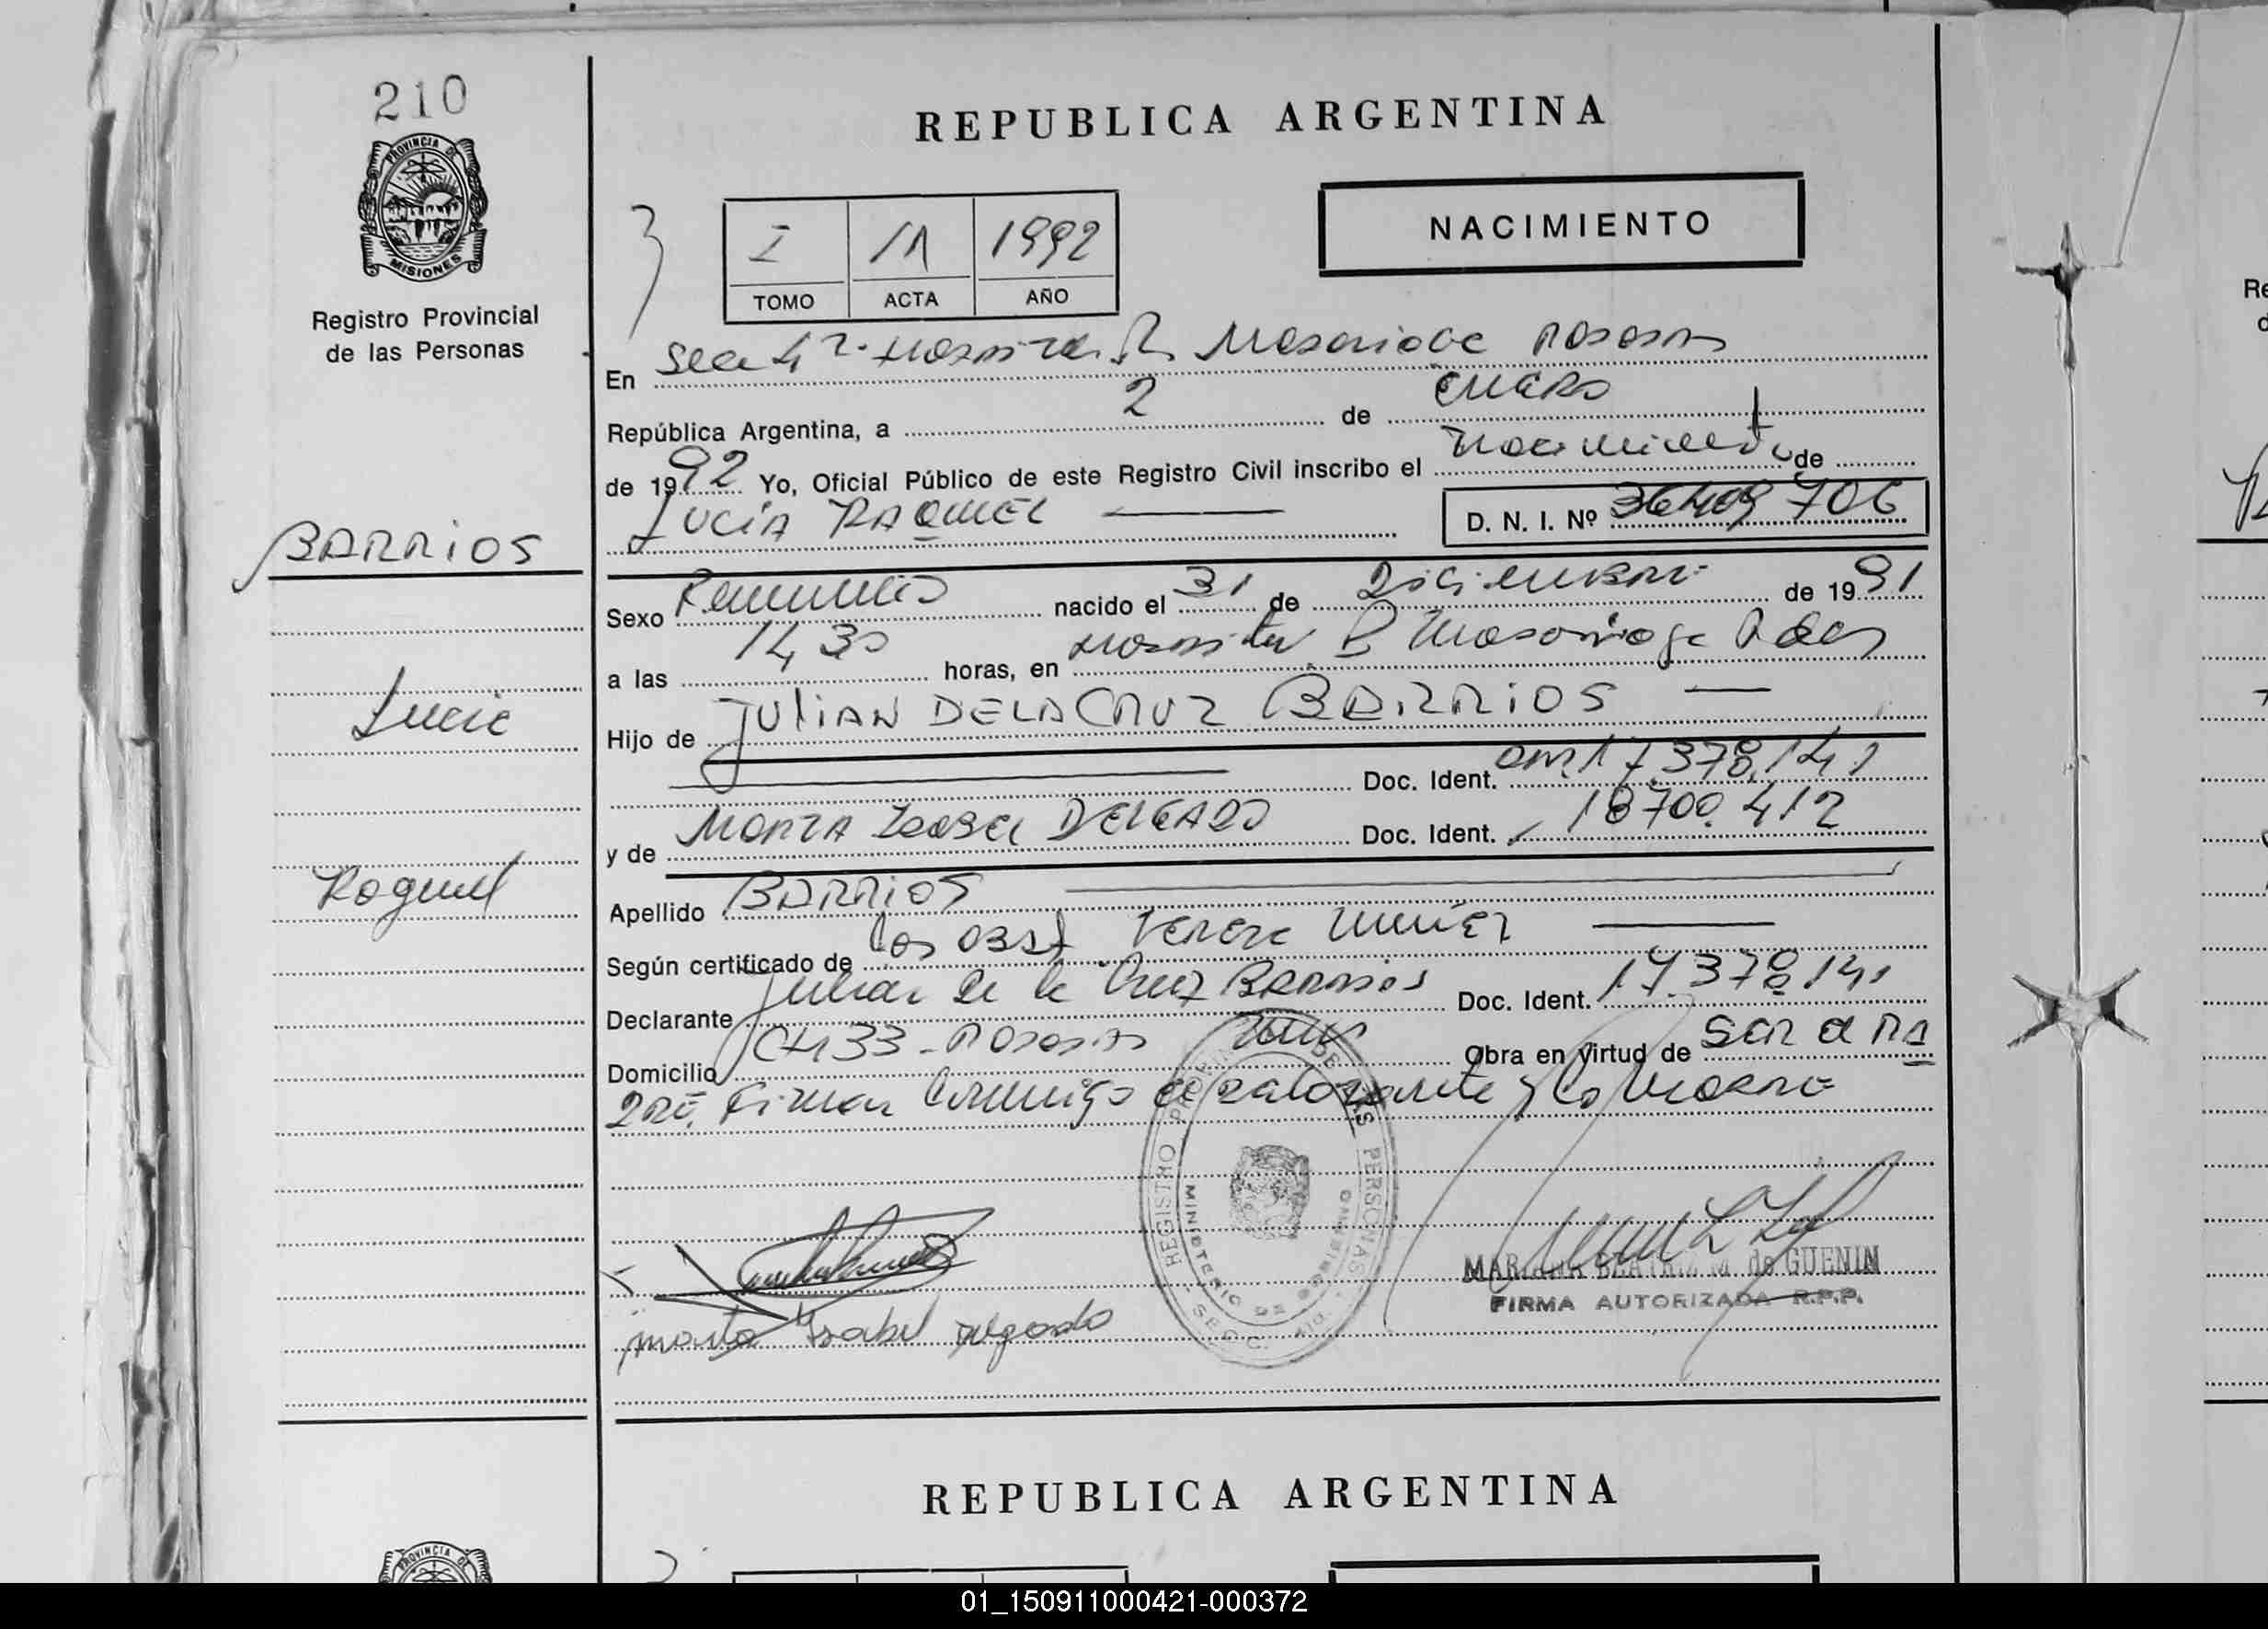 210
PROVINCIA DE
MISIONES
Registro Provincial
de las Personas
REPUBLICA ARGENTINA
NACIMIENTO
I 11 1992
TOMO ACTA AÑO
En
República Argentina, a 2 de enero
de 1992 Yo, Oficial Público de este Registro Civil inscribo el nacimiento de
LUCIA RAQUEL
D. N. I. Nº 36409 706
BARRIOS
Sexo Femenino nacido el 31 de Diciembre de 1991
a las 14,30 horas, en
Lucia
Hijo de JULIAN DE LA CRUZ BARRIOS
Doc. Ident. 17.378.141
y de Isabel DELGADO Doc. Ident. 18700.412
Raquel
Apellido BARRIOS
Según certificado de
Declarante Julian de la Cruz Barrios Doc. Ident. 17.378.141
Domicilio CH 33 - Posadas Obra en virtud de ser el
Firman conmigo el y la madre
REGISTRO PROVINCIAL DE LAS PERSONAS
MINISTERIO DE GOBIERNO
MARIANA BEATRIZ M. de GUENIN
FIRMA AUTORIZADA R.P.P.
marta Isabel delgado
REPUBLICA ARGENTINA
PROVINCIA DE
01_150911000421-000372